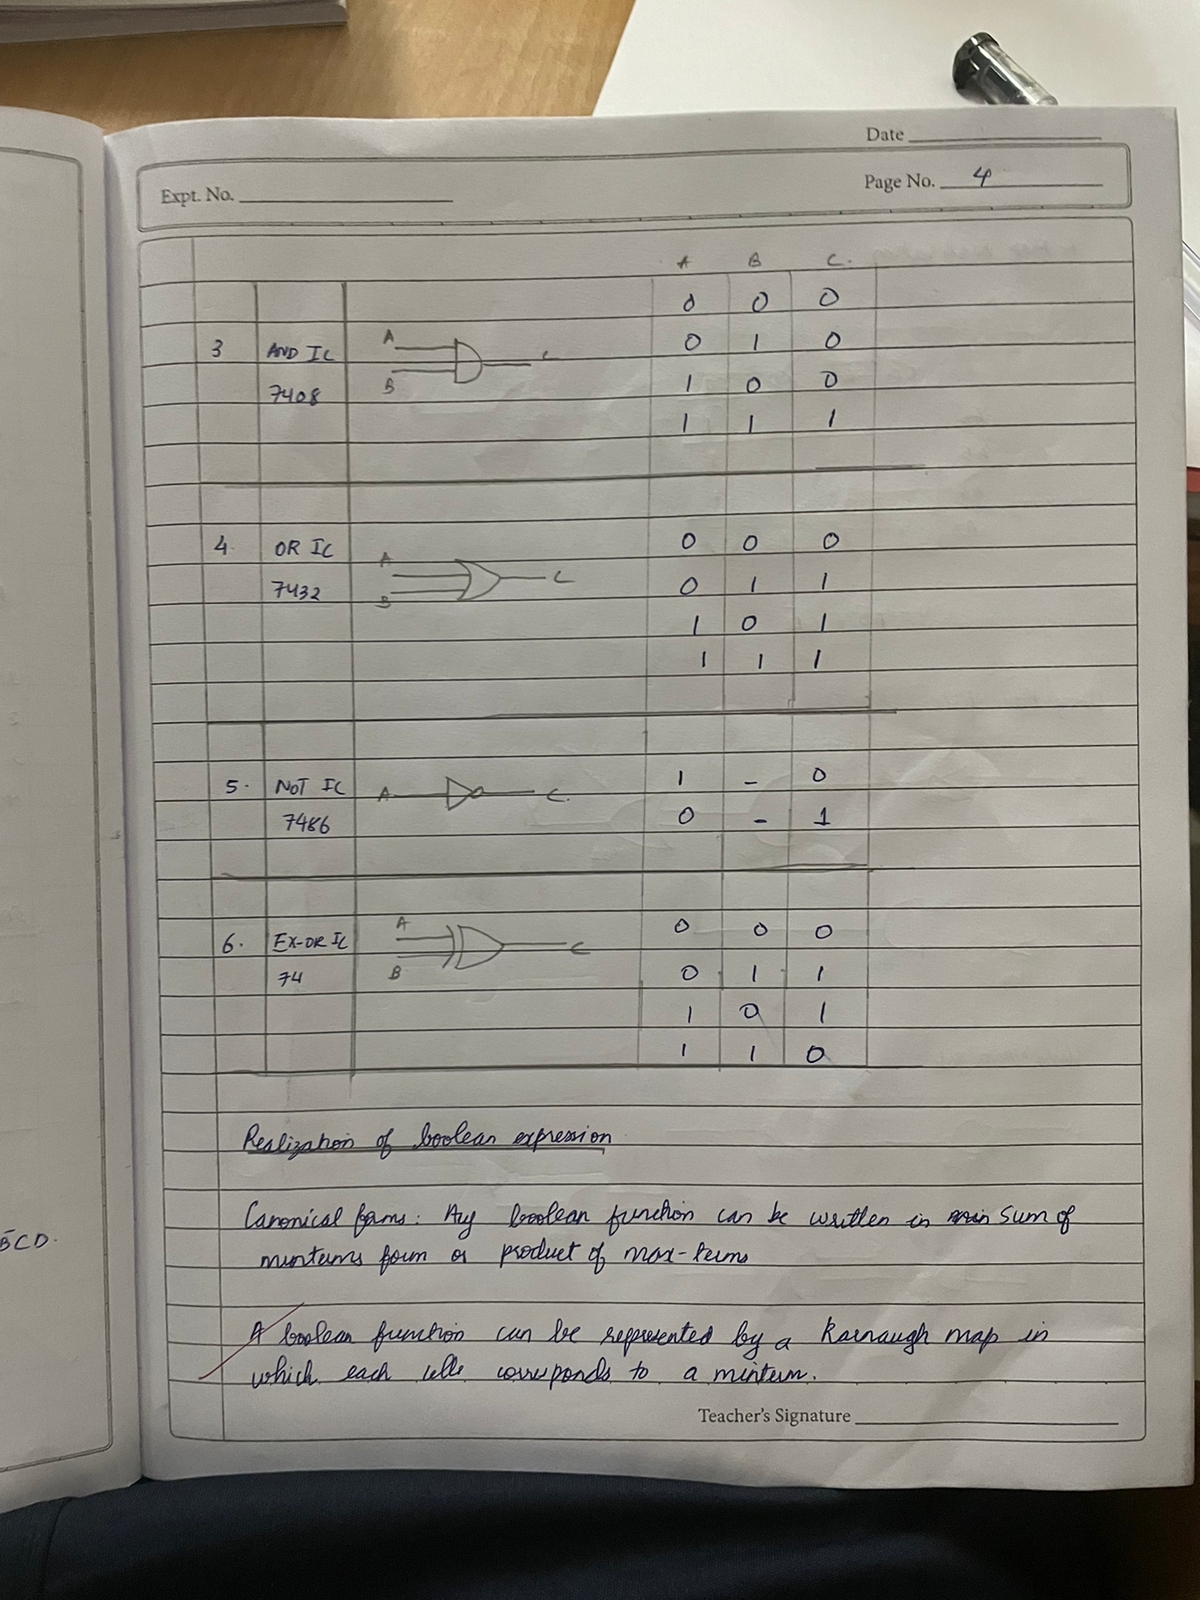 Date
Expt. No.
Page No. 4
A B C.
0 0 0
3 AND IC A C 0 1 0
7408 B 1 0 0
1 1 1
4. OR IC A 0 0 0
7432 B C 0 1 1
1 0 1
1 1 1
5. NOT IC A C. 1 - 0
7486 0 - 1
6. EX-OR IC A C 0 0 0
74 B 0 1 1
1 0 1
1 1 0
Realization of boolean expression
Canonical forms: Any boolean function can be written in sum of
minterms form or product of max-terms
A boolean function can be represented by a Karnaugh map in
which each cells corresponds to a minterm.
Teacher's Signature
BCD.